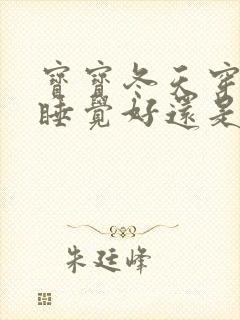 寶寶冬天穿
睡覺好還是
朱廷峰